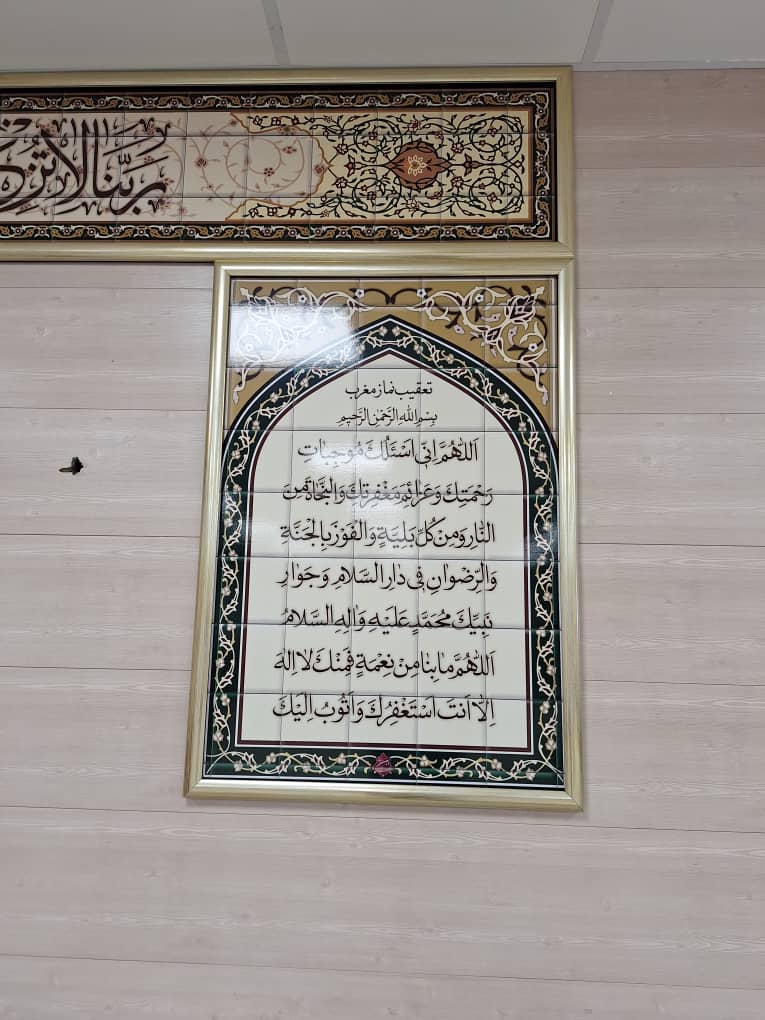 ربنا لا تزغ
تعقیب نماز مغرب
بِسْمِ اللهِ الرَّحْمٰنِ الرَّحیمِ
اَللّٰهُمَّ اِنّی اَسْئَلُكَ مُوجِباتِ
رَحْمَتِكَ وَعَزائِمَ مَغْفِرَتِكَ وَالنَّجاةَ مِنَ
النّارِ وَمِنْ كُلِّ بَلِيَّةٍ وَالْفَوْزَ بِالْجَنَّةِ
وَالرِّضْوانِ فی دارِ السَّلامِ وَجَوارِ
نَبِيِّكَ مُحَمَّدٍ عَلَيْهِ وَالِهِ السَّلامُ
اَللّٰهُمَّ مابِنا مِنْ نِعْمَةٍ فَمِنْكَ لا اِلهَ
اِلّا اَنْتَ اَسْتَغْفِرُكَ وَاَتُوبُ اِلَيْكَ